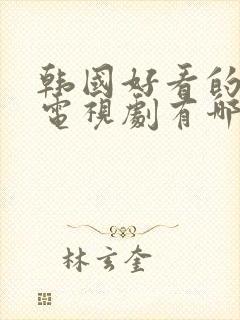 韩國好看的
電視劇有哪
林玄奎